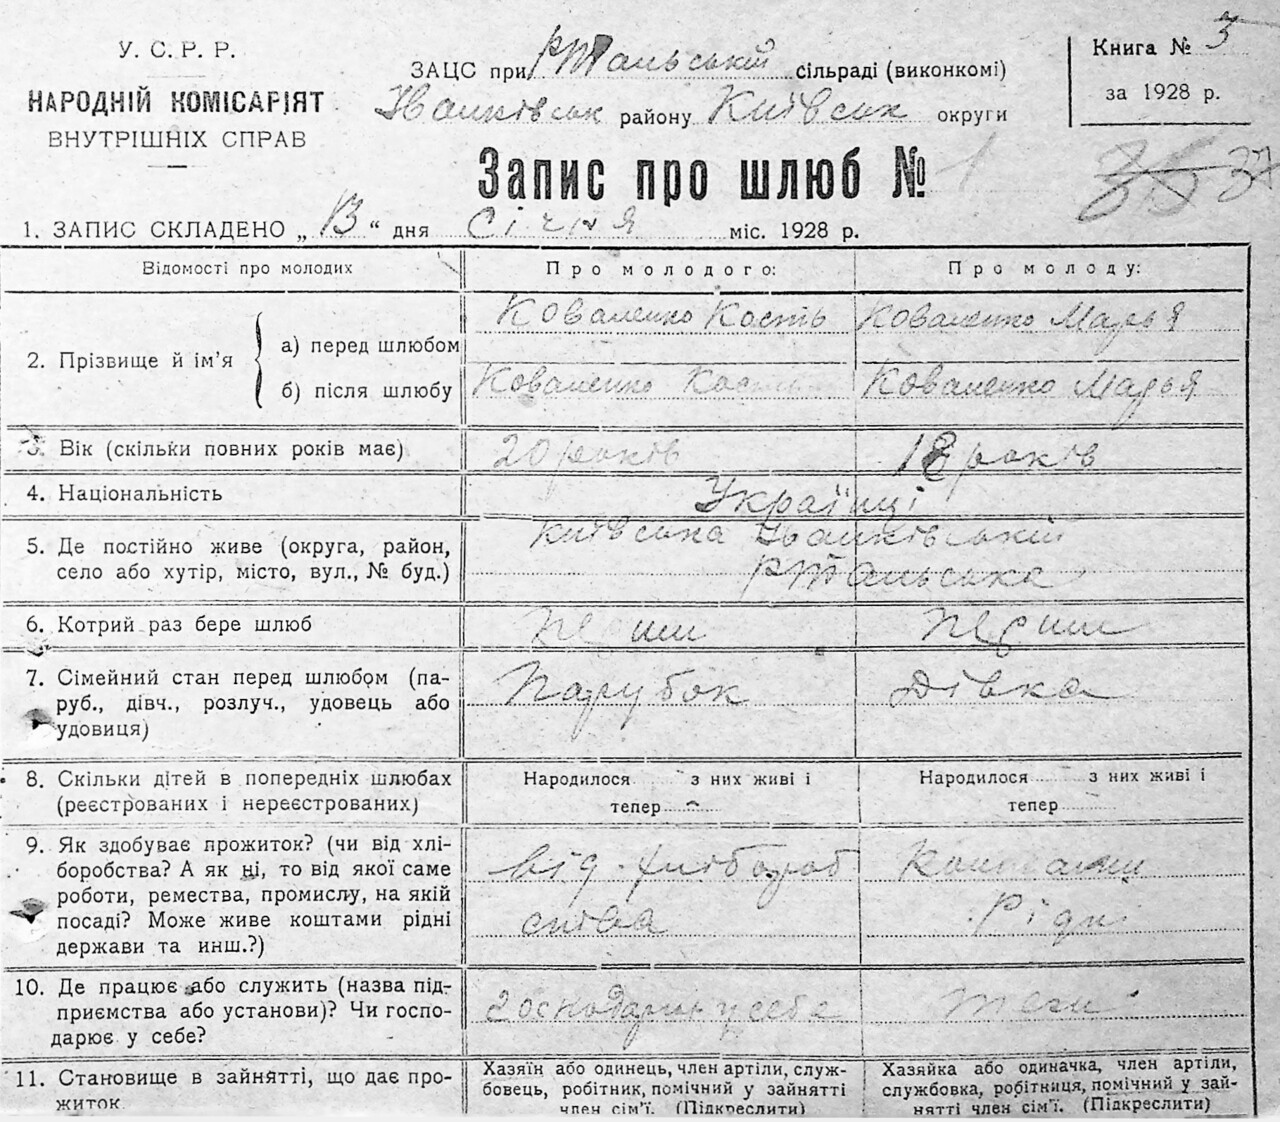 У. С. Р. Р.
НАРОДНІЙ КОМІСАРІЯТ
ВНУТРІШНІХ СПРАВ
ЗАЦС при Ртальській сільраді (виконкомі)
Іванківськ району Київськ округи
Книга № 3
за 1928 р.
Запис про шлюб № 1
35 37
1. ЗАПИС СКЛАДЕНО „ 13 “ дня Січня міс. 1928 р.
Відомості про молодих
Про молодого:
Про молоду:
2. Прізвище й ім’я
а) перед шлюбом
Коваленко Кость
Коваленко Марья
б) після шлюбу
Коваленко Кость
Коваленко Марья
3. Вік (скільки повних років має)
20 років
18 років
4. Національність
Українці
5. Де постійно живе (округа, район,
село або хутір, місто, вул., № буд.)
Київська Іванківській
Ртальська
6. Котрий раз бере шлюб
перши
перши
7. Сімейний стан перед шлюбом (па-
руб., дівч., розлуч., удовець або
удовиця)
Парубок
Дівка
8. Скільки дітей в попередніх шлюбах
(реєстрованих і нереєстрованих)
Народилося з них живі і
тепер
Народилося з них живі і
тепер
9. Як здобуває прожиток? (чи від хлі-
боробства? А як ні, то від якої саме
роботи, ремества, промислу, на якій
посаді? Може живе коштами рідні
держави та инш.?)
від хлібороб
ства
Коштами
Рідні
10. Де працює або служить (назва під-
приємства або установи)? Чи госпо-
дарює у себе?
господарює у себе
11. Становище в зайнятті, що дає про-
житок
Хазяїн або одинець, член артілі, служ-
бовець, робітник, помічний у зайнятті
член сім’ї. (Підкреслити)
Хазяйка або одиначка, член артіли,
службовка, робітниця, помічний у зай-
нятті член сім’ї. (Підкреслити)